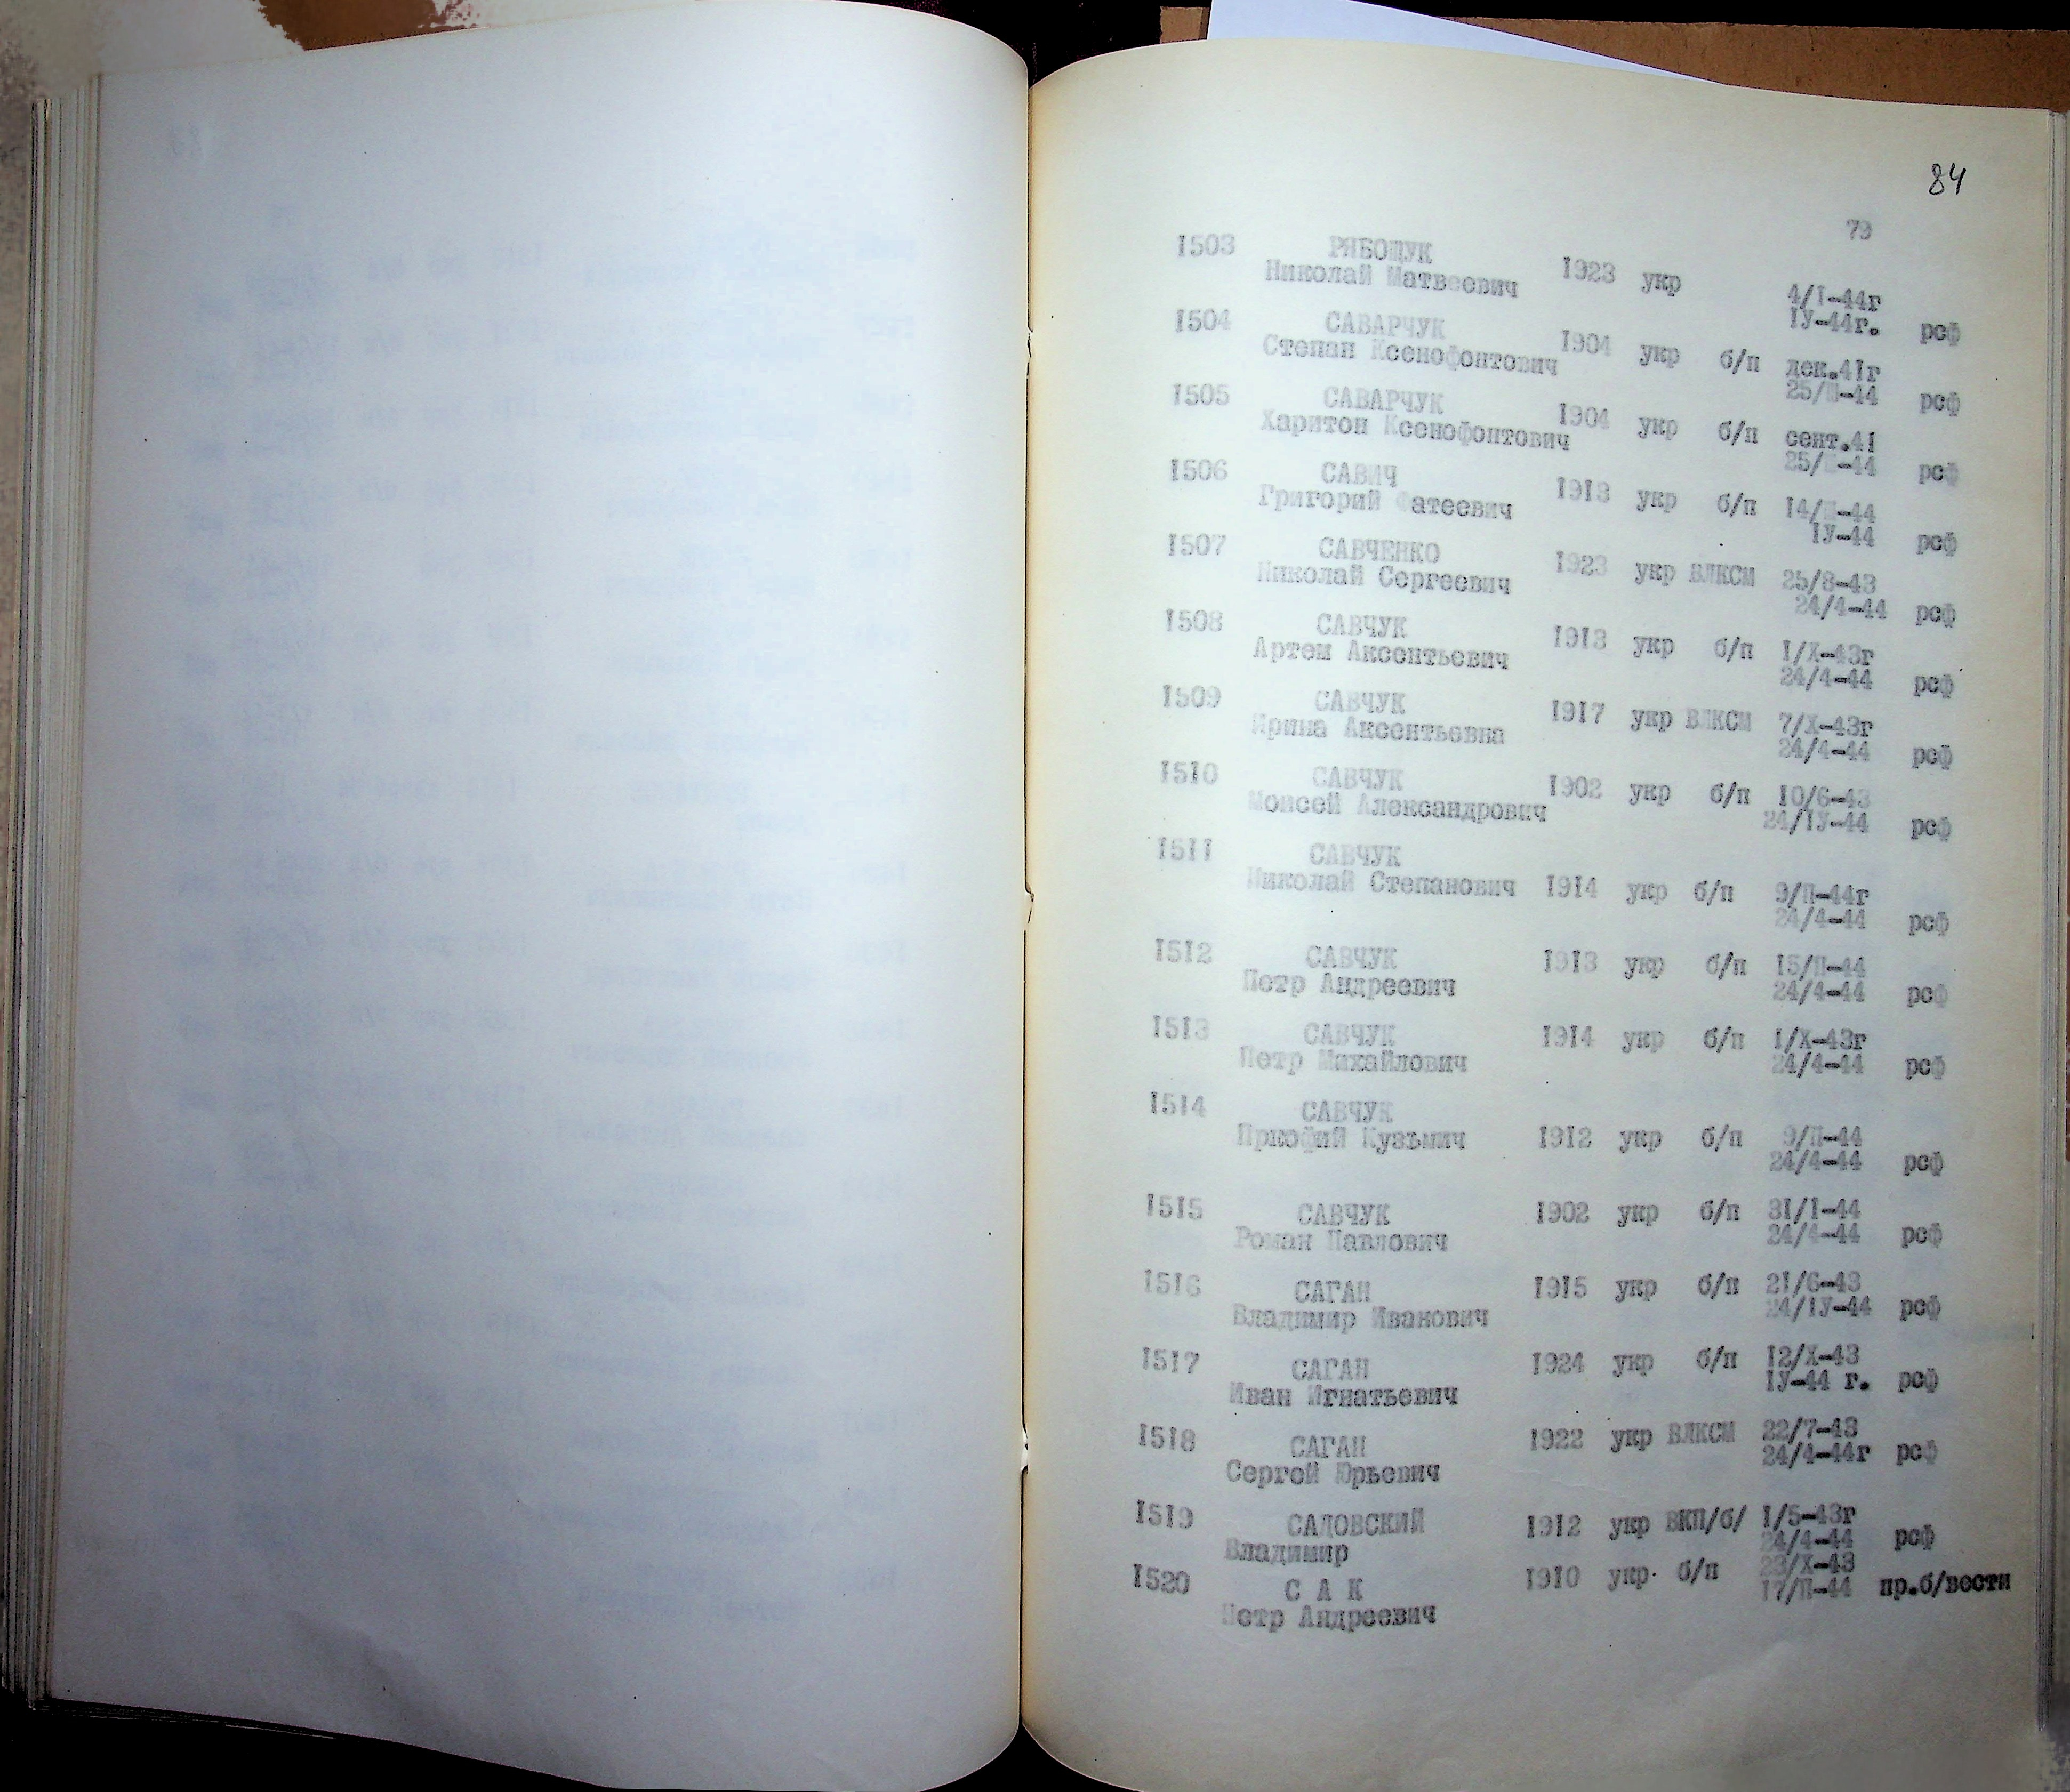 84
79
1503 РЯБОЩУК
Николай Матвеевич 1923 укр 4/I-44г
IУ-44г. рсф
1504 САВАРЧУК
Степан Ксенофонтович 1904 укр б/п дек.4Iг
25/Ш-44 рсф
1505 САВАРЧУК
Харитон Ксенофонтович 1904 укр б/п сент.4I
25/Ш-44 рсф
1506 САВИЧ
Григорий Фатеевич 1913 укр б/п I4/Ш-44
IУ-44 рсф
1507 САВЧЕНКО
Николай Сергеевич 1923 укр ВЛКСМ 25/8-43
24/4-44 рсф
1508 САВЧУК
Артем Аксентьевич 1913 укр б/п I/Х-43г
24/4-44 рсф
1509 САВЧУК
Ирина Аксентьевна 1917 укр ВЛКСМ 7/Х-43г
24/4-44 рсф
1510 САВЧУК
Моисей Александрович 1902 укр б/п I0/6-43
24/IУ-44 рсф
1511 САВЧУК
Николай Степанович 1914 укр б/п 9/П-44г
24/4-44 рсф
1512 САВЧУК
Петр Андреевич 1913 укр б/п I5/П-44
24/4-44 рсф
1513 САВЧУК
Петр Михайлович 1914 укр б/п I/Х-43г
24/4-44 рсф
1514 САВЧУК
Пркофий Кузьмич 1912 укр б/п 9/П-44
24/4-44 рсф
1515 САВЧУК
Роман Павлович 1902 укр б/п 3I/I-44
24/4-44 рсф
1516 САГАН
Владимир Иванович 1915 укр б/п 2I/6-43
24/IУ-44 рсф
1517 САГАН
Иван Игнатьевич 1924 укр б/п I2/Х-43
IУ-44 г. рсф
1518 САГАН
Сергей Юрьевич 1922 укр ВЛКСМ 22/7-43
24/4-44г рсф
1519 САДОВСКИЙ
Владимир 1912 укр ВКП/б/ I/5-43г
24/4-44 рсф
1520 С А К
Петр Андреевич 1910 укр. б/п 23/Х-43
I7/П-44 пр.б/вести